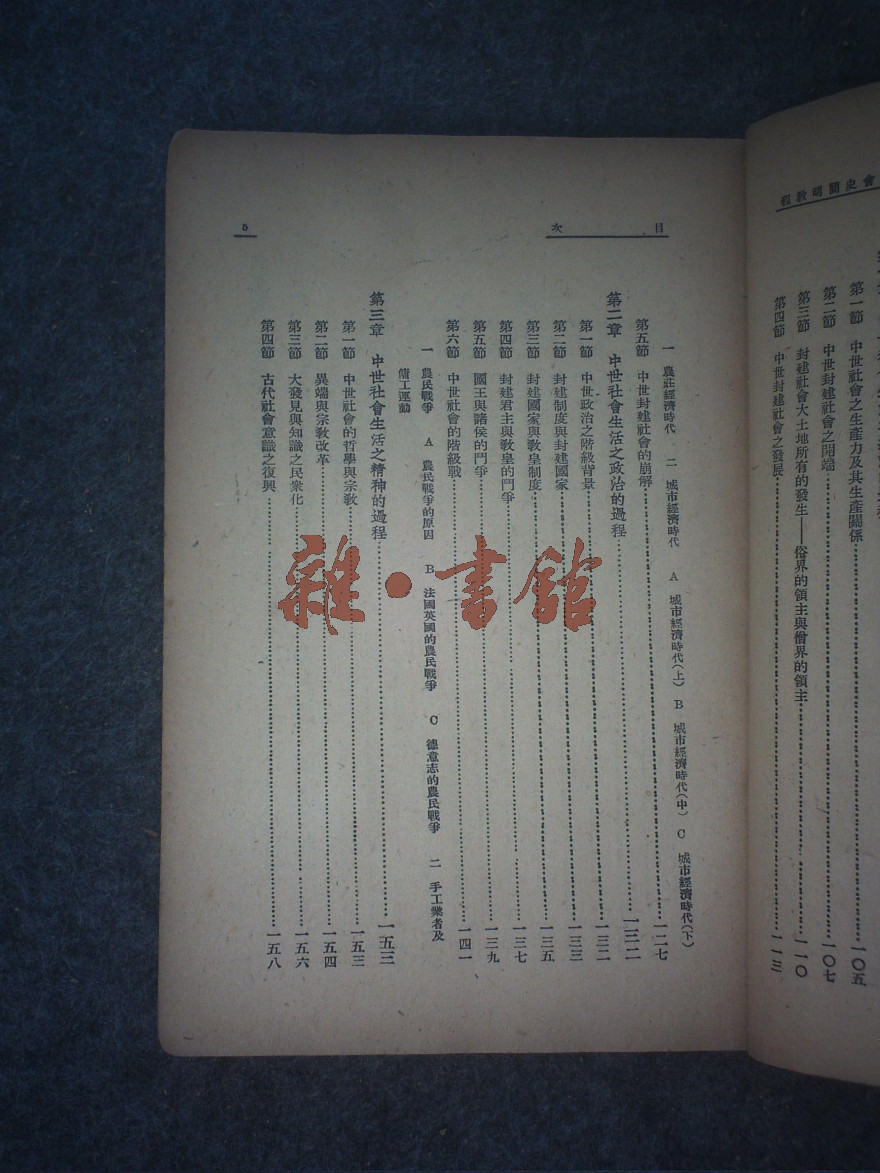 會史簡明教程
第一節 中世社會之生產力及其生產關係 一〇五
第二節 中世封建社會之開端 一〇七
第三節 封建社會大土地所有的發生——俗界的領主與僧界的領主 一一〇
第四節 中世封建社會之發展 一一三
目次
5
一 農莊經濟時代 二 城市經濟時代 A 城市經濟時代(上) B 城市經濟時代(中) C 城市經濟時代(下)
第五節 中世封建社會的崩解 一二七
第二章 中世社會生活之政治的過程 一三二
第一節 中世政治之階級背景 一三二
第二節 封建制度與封建國家 一三三
第三節 封建國家與教皇制度 一三五
第四節 封建君主與教皇的鬥爭 一三七
第五節 國王與諸侯的鬥爭 一三九
第六節 中世社會的階級戰 一四一
一 農民戰爭 A 農民戰爭的原因 B 法國英國的農民戰爭 C 德意志的農民戰爭 二 手工業者及
傭工運動
第三章 中世社會生活之精神的過程 一五三
第一節 中世社會的哲學與宗教 一五三
第二節 異端與宗教改革 一五四
第三節 大發見與知識之民衆化 一五六
第四節 古代社會意識之復興 一五八
雜·書館